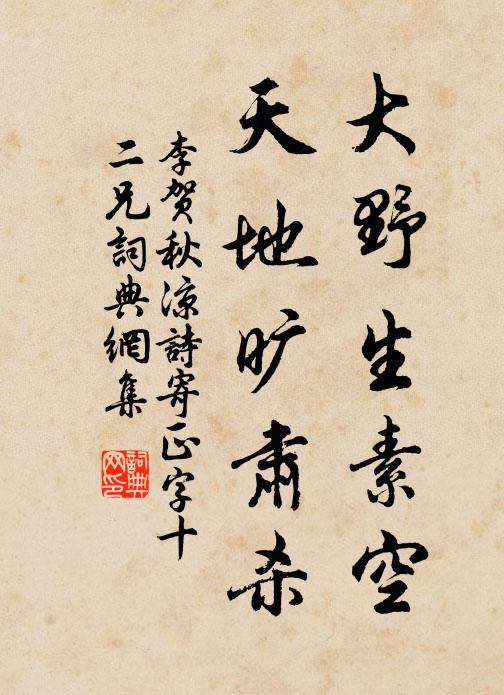 大野生素空
天地旷肃杀
李贺秋凉詩寄正字十
二兄詞典網集
詞典
网印